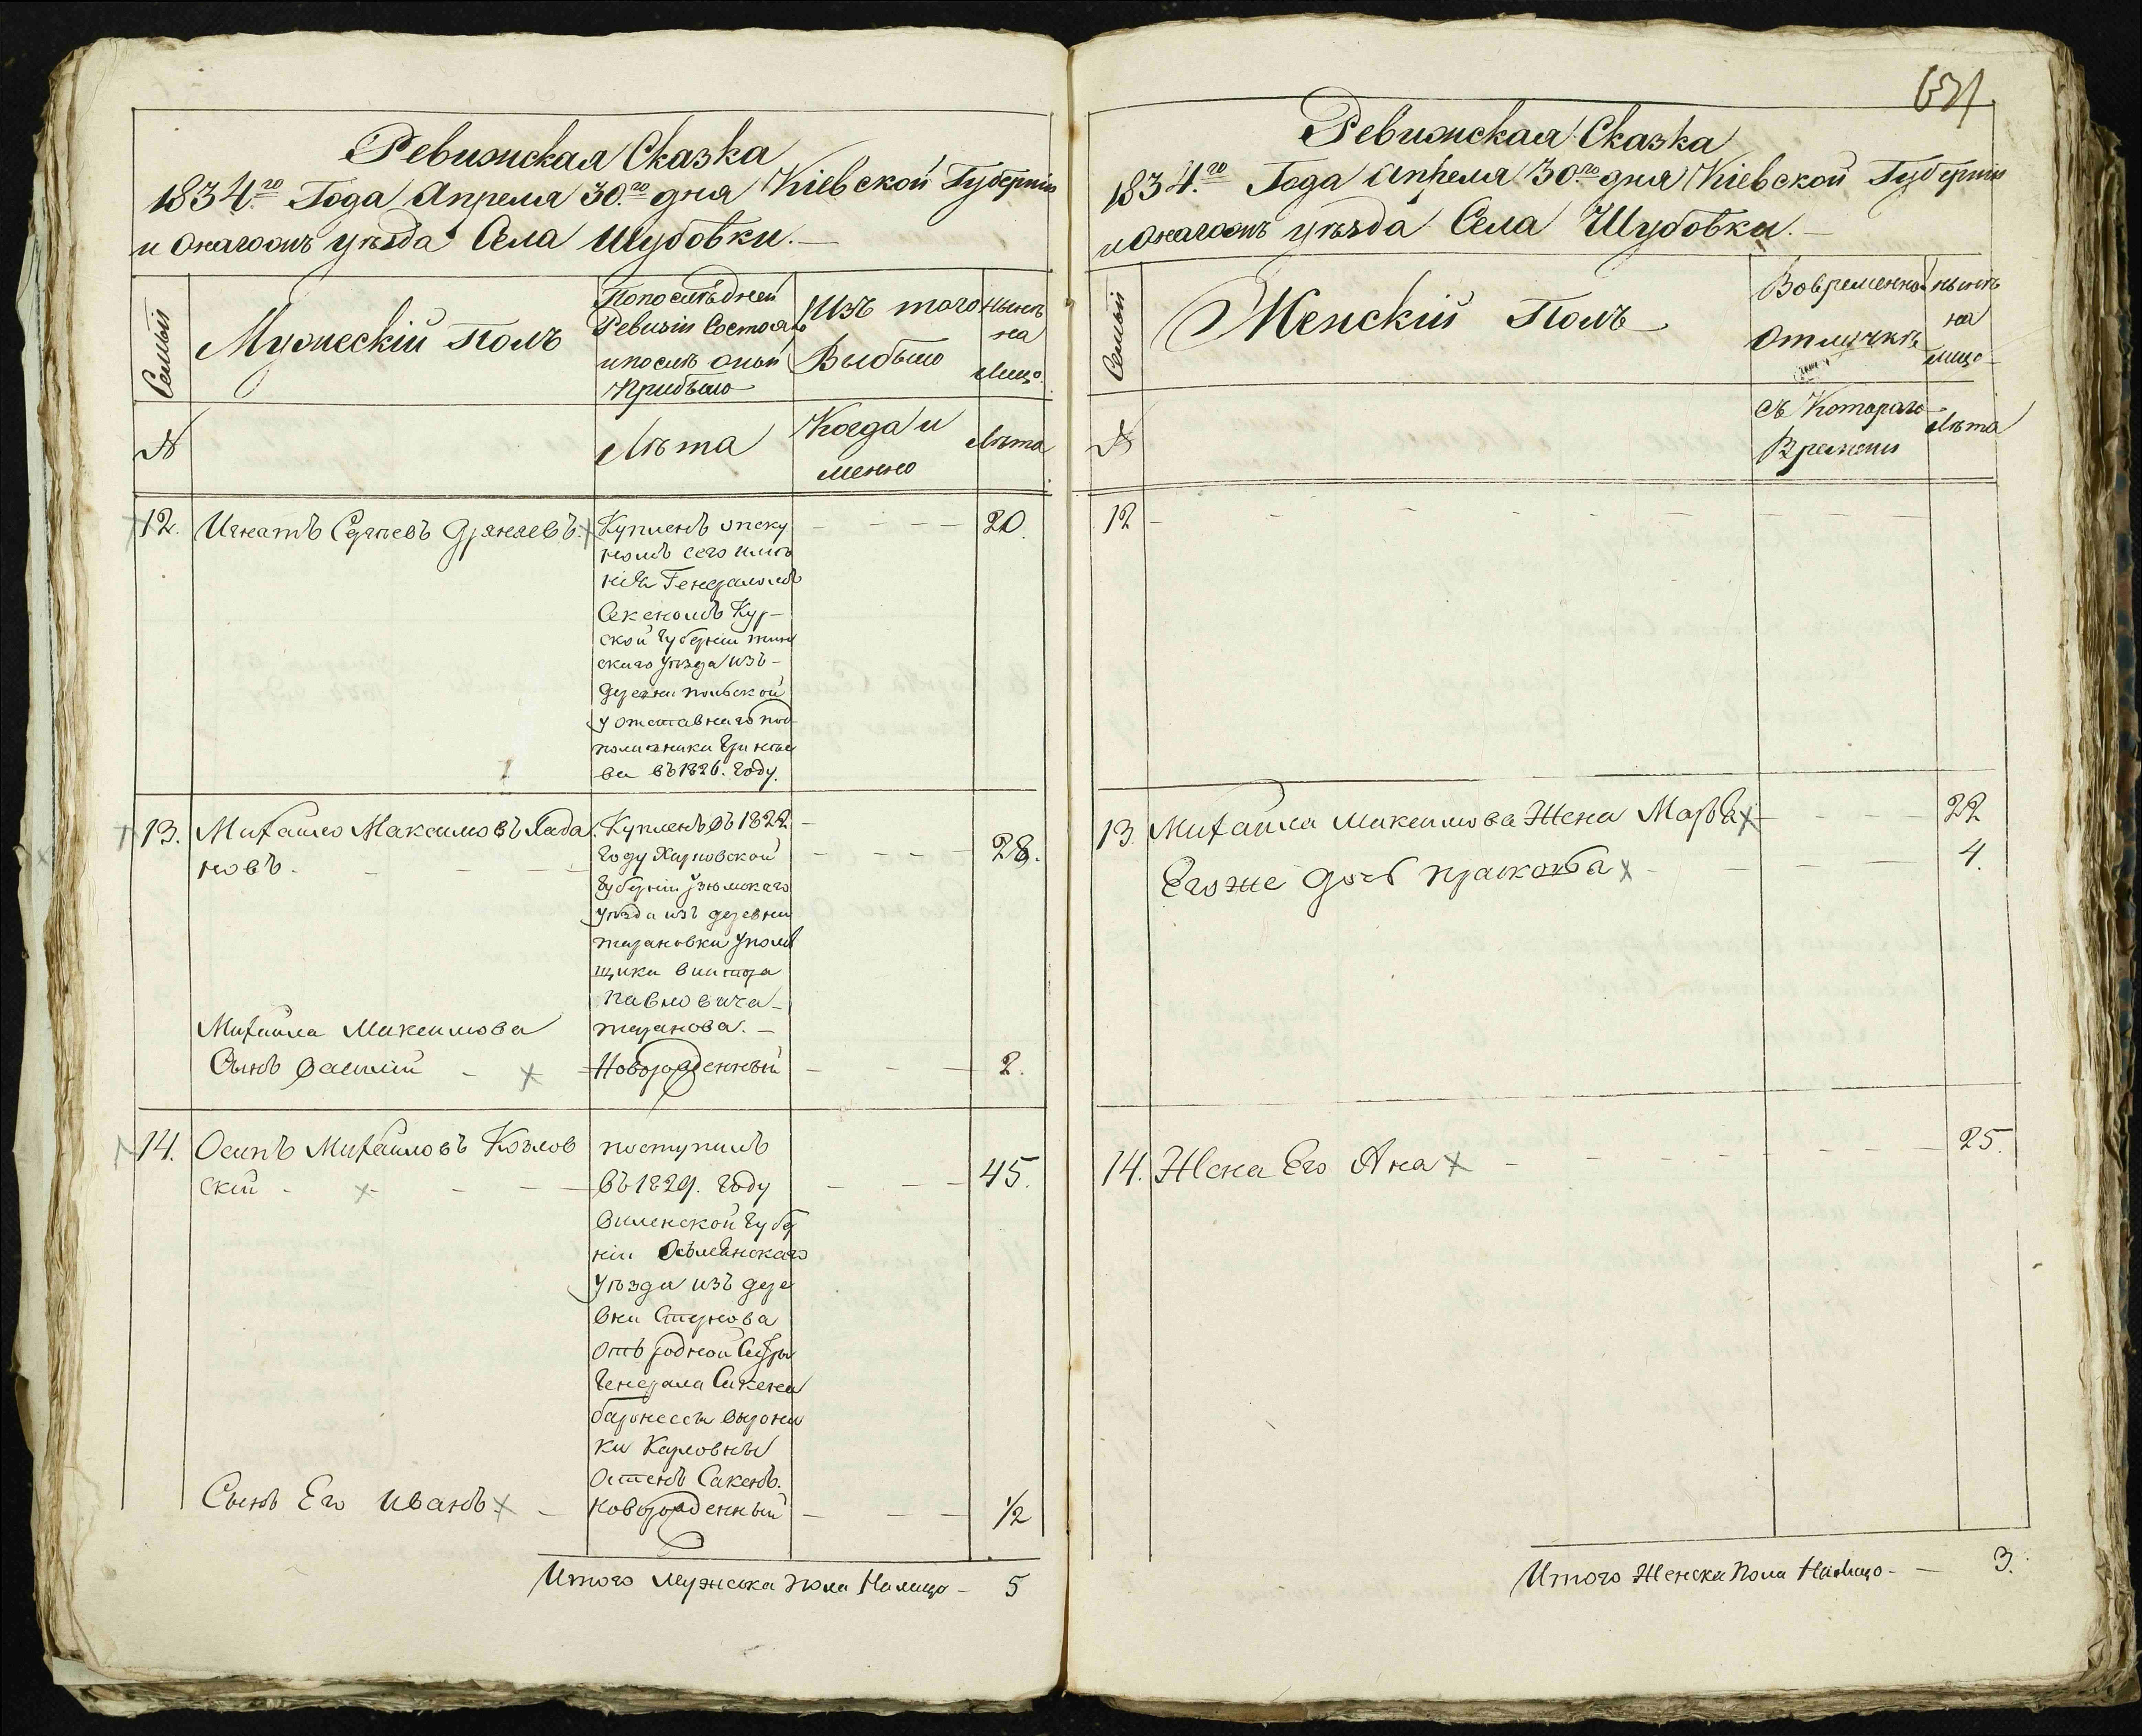 Ревижская Сказка
1834.го Года Апреля 30.го дня Кіевской Губерніи
уѣзда Села Шубовки.
Семьи
Мужескій Полъ
По последней
Ревизіи Состояло
и послѣ оной
Прибыло
Изъ того
Выбыло
Нынѣ
на
Лицо.
№
Лѣта
Когда и
менно
Лѣта
12. Игнатъ Сергѣевъ
Купленъ опеку
номъ сего имѣ
нія Генераломъ
Сакеномъ Кур-
ской Губерніи тим
скаго уѣзда изъ-
деревни
у отставнаго под
полковника
ва въ 1826. году.
20.
13. Михайло Максимовъ
новъ.
Купленъ въ 1822
году Харковской
Губерніи Узюмскаго
уѣзда изъ деревни
у помѣ
щика
Павловича
28.
Михайла Максимова
Сынъ Василій
Новорожденный
2.
14. Осипъ Михайловъ Козлов
скій
поступилъ
въ 1829. году
Виленской Губер
ніи Ошмянскаго
Уѣзда изъ дере
вни
отъ родной Сестры
Генерала Сакена
баронессы Вирони
ки Карловны
Остенъ Сакенъ.
45.
Сынъ Его Иванъ
Новорожденный
1/2
Итого Мужска пола Налицо - 5
Ревижская Сказка
1834.го Года Апреля 30.го дня Кіевской Губерніи
уѣзда Села Шубовки.
Семьи
Женскій Полъ
Во временной
Отлучкѣ
нынѣ
на
лицо
№
съ Котораго
Времени
Лѣта
12
13. Михайла Максимова Жена Марья 22
Его же дочь прасковья 4.
14. Жена Его Ана 25.
Итого Женска Пола Налицо - 3.